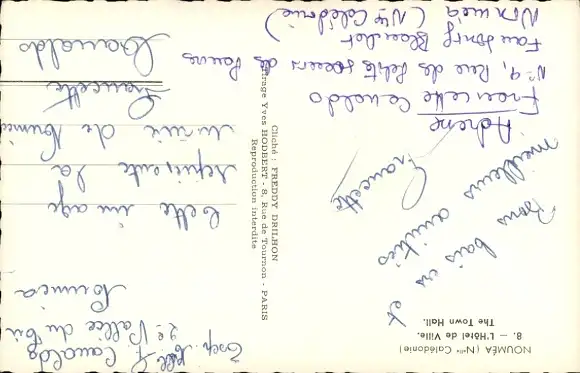 NOUMÉA (Nlle Calédonie)
8. — L'Hôtel de Ville.
The Town Hall.
Bons baisers et
meilleurs amitiés
Francette
Adresse
Francette Canaldo
Nº 9, Rue des Petites soeurs des Pauvres
Faubourg Blanchot
Nouméa (Nlle Calédonie)
Cliché : FREDDY DRILHON
Tirage Yves HODBERT - 8, Rue de Tournon - PARIS
Reproduction interdite
Exp. Mlle F. Canaldo
2e Vallée du Tir
Nouméa
Cette image
représente la
mairie de Nouméa
Francette
Canaldo